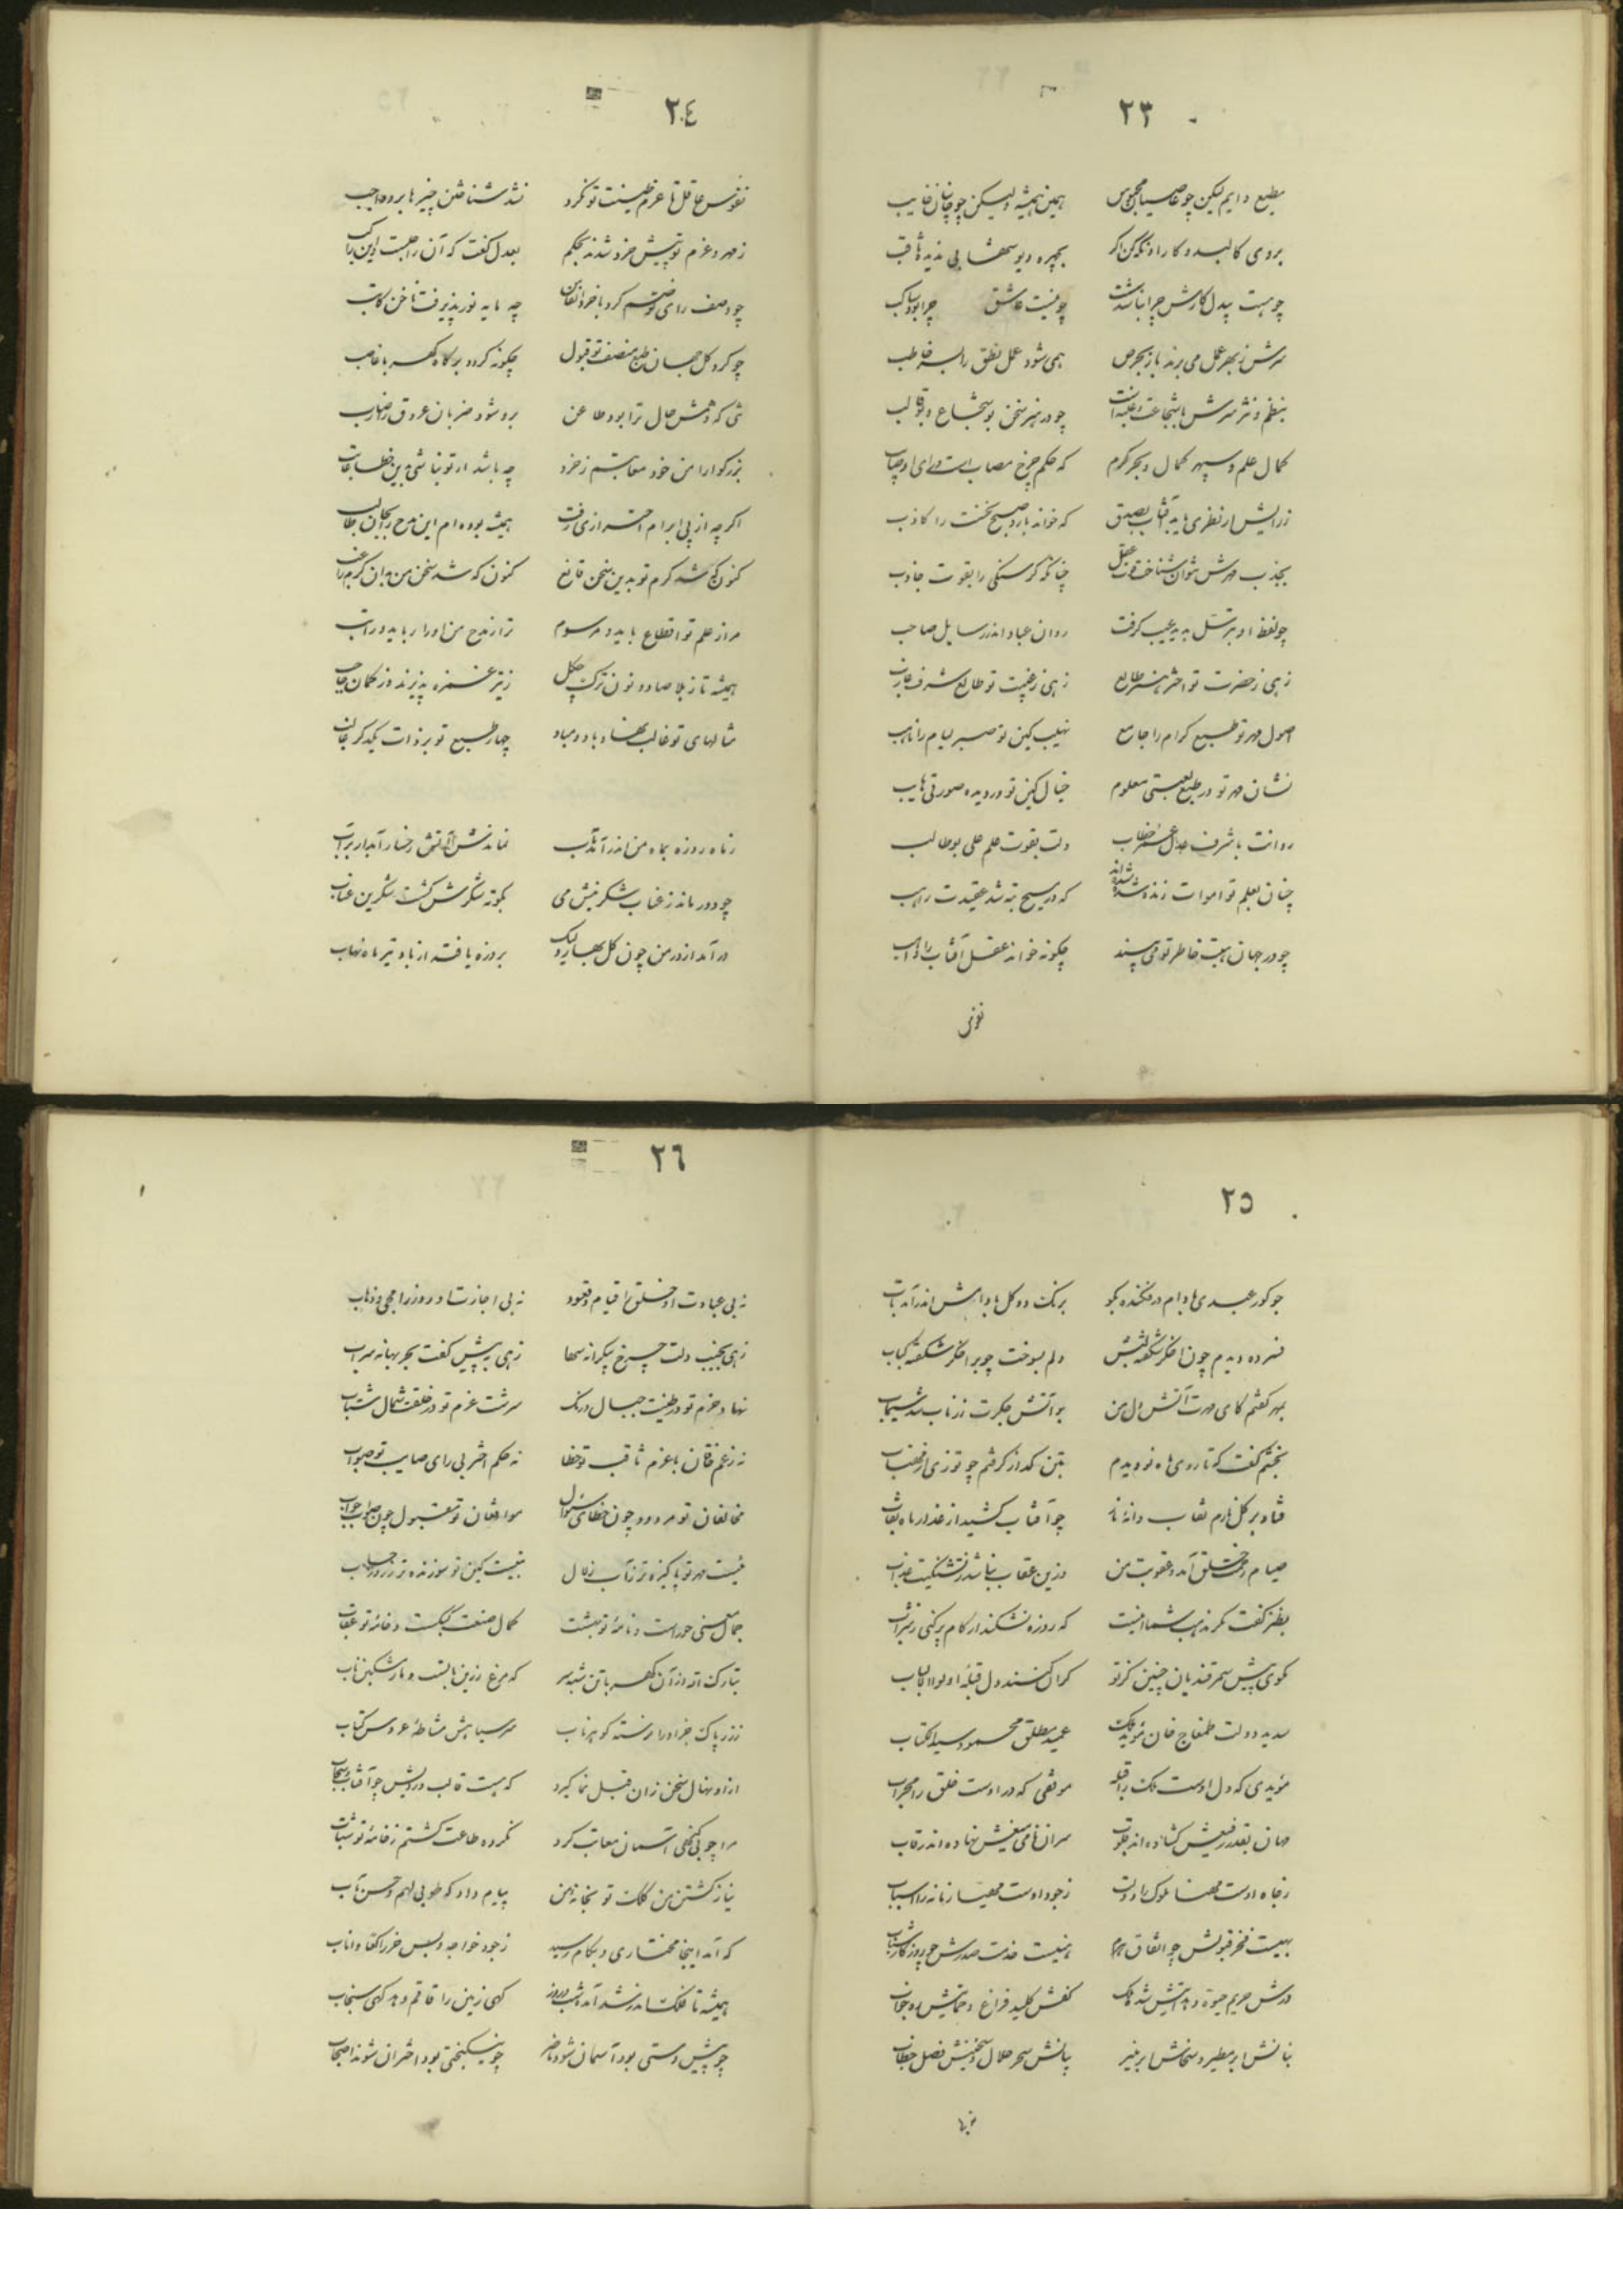 ٢٣
مطیع دایم لیکن چو عاصیان محبوس همین همیشه ولیکن چو جانیان غایب
بروی کالبد و کار او نکه کن اگر بچهره دیو شهابی ندیده ثاقب
چو هست بیدل کارش چرا نباشد چو نیست عاشق چرا بود ساکب
سرش ز بهر عمل می برند باز بحرص همی شود عمل نطق را بسر خاطب
بنظم و نثر سرش با شجاعت و غلبه است چو در هنر سخن بو شجاع و بو غالب
کمال علم و سپهر کمال و بحر کرم که حکم چرخ مصاب است و رای او صایب
ز رایش ار نظری یابد آفتاب بصدق که خواند یارد صبح نخست را کاذب
بجذب مهرش بتوان شناخت قوت عقل چنانکه گرسنگی را بقوت جاذب
چو لفظ او بترسل بدیه غیب گرفت روان عباد اندر رسایل صاحب
زهی ز حضرت تو اختر هنر طالع زهی ز غیبت تو طالع شرف غارب
اصول مهر تو طبع کرام را جامع نهیب کین تو صبر لیام را ناهب
نشان مهر تو در طبع نعمتی معلوم خیال کین تو در دیده صورتی هایب
روانت با شرف عدل عمر خطاب دلت بقوت علم علی بوطالب
چنان بعلم تو اموات زنده شده اند که در مسیح به شد عقیدت راهب
چو در جهان هیبت خاطر تو می بیند چگونه خواند عقل آفتاب را ذاهب
نفوس
٢٤
نفوس عاقله تا عزم طینت تو نکرد نشد شناختن چیزها برو واجب
ز مهر و عزم تو پیش خرد شدند بحکم بعدل گفت که آن راجلست این راکب
چو وصف رای تو رسم کرد با خرد انفاس چه مایه نور پذیرفت ناخن کاتب
چو کرد کل جهان طبع منصف تو قبول چگونه گردد بر کاه کهربا غاصب
تنی که دشمن حال ترا بود طاعن برو شود ضربان عروق او ضارب
بزرگوارا من خود معاتبم ز خرد چه باشد ار تو نباشی بدین خطا عاتب
اگرچه از پی ابرام احترازی رفت همیشه بوده ام این مدح را بجان طالب
کنون که شد کرم تو بدین سخن قانع کنون که شد سخن من بدان کرم راغب
مرا ز علم تو اقطاع باید و مرسوم ترا ز مدح من اوراد باید و راتب
همیشه تا ز بلا صاد و نون ترک چکل ز تیر غمزه پذیرند و ز کمان حاجب
مثالهای تو غالب نهاد باد و مباد چهار طبع تو بر ذات یکدگر غالب
ز ماه روزه بماه من اندر آمد تاب نماندش آتش رخسار آبدار پر آب
چو دور ماند ز عناب شکرینش می بگونه شکرش گشت شکرین عناب
در آمد از در من چون گل بهار ولیک بروزه یافته از باد تیر ماه نهاب
٢٥
چو گور عیدی بادام در فکنده بگو برنگ دو گل بادامش اندر آمد باب
فسرده دیدم چون اخگر شکفته لبش دلم بسوخت چو بر اخگر شکفته کباب
بمهر گفتم کای مهرت آتش دل من بر آتش جگرت زر ناب شد سیماب
بخشم گفت که تا روی ماه نو دیدم بتن گداز گرفتم چو توزی از مهتاب
فتاد بر گل نازم نقاب دانه نار چو آفتاب کشید از غدار ماه نقاب
صیام رحمت خلق آمد و عقوبت من وزین عقاب نباشد بتشنگیت عذاب
بطنز گفت مگر مذهب شما اینست که روزه نشکند ار کام پر کنی ز شراب
مگوی پیش سمرقندیان چنین کز تو کران کنند دل قبله اولوالالباب
سدید دولت طمغاج خان مؤید ملک عمید مطلق محمود سید الکتاب
مؤیدی که دل اوست ملک را قبله موفقی که در اوست خلق را محراب
مهان بقدر رفیعش گشاده اند قلوب سران نامی تیغش نهاده اند رقاب
ز جاه اوست مهنا ملوک را دولت ز جود اوست مهیا زمانه را اسباب
بهیبت فخر قبولش چو اتفاق کرام هنیست خدمت صدرش چو روزگار شباب
درش حریم حیوة و بدانش شد ملک کفش کلید فراغ و حمایتش در خواب
بنانش ابر مطیر و سخاش ابر منیر بیانش سحر حلال و سخنش فصل خطاب
نه بی
٢٦
نه بی عبادت او خلق را قیام و قعود نه بی اجازت او روز را مجی و ذهاب
زهی بجنب دلت چرخ بیکرانه سها زهی به پیش کفت بحر بیهانه سراب
نهاد حزم تو در طینت جبال درنک سرشت عزم تو در خلقت شمال شتاب
نه زعم فان با عزم ثاقب تو خطا نه حکم اختر بی رای صایب تو صواب
مخالفان تو مردود چون خطای سئوال موافقان تو مقبول چون صواب جواب
بنسبت مهر تو پاکیزه تر ز آب زلال بنیبت کین تو سوزنده تر ز روز حساب
جمال معنی حور است و نامه تو بهشت کمال صنعت کبکست و خامه تو عقاب
تبارک الله از آن کهربا تن شبه سر که مرغ زرین بالست و مار مشکین ناب
ز زر پاک جزا و را رسته گوهر ناب سر سیاهش مشاطه عروس کتاب
از او نهال سخن زان قبل نما گیرد که هست قالب و رویش چو آفتاب و سحاب
مرا چو بی گنهی آسمان معاتب کرد نکرده طاعت گشتم ز خامه تو مثاب
نیاز گشتن من کلک تو بخانه من پیام داد که طوبی لهم و حسن مآب
که آمد اینجا مختاری و بکام رسید ز جود خواجه و لبس خز را کفا و اناب
همیشه تا فلک اندر شد آمد شب و روز گهی زمین را قاقم دهد گهی سنجاب
چو پیش دستی بود آسمان شود ناصر چو نیکبختی بود اختران شوند اصحاب